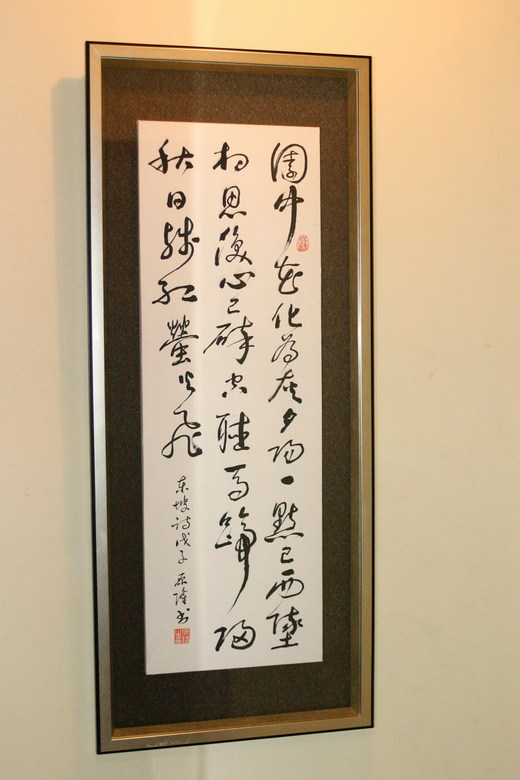 園中花化為灰夕陽一點已西墜
相思淚心已碎空聽馬蹄歸
秋日殘紅螢火飛
東坡詩戊子
書